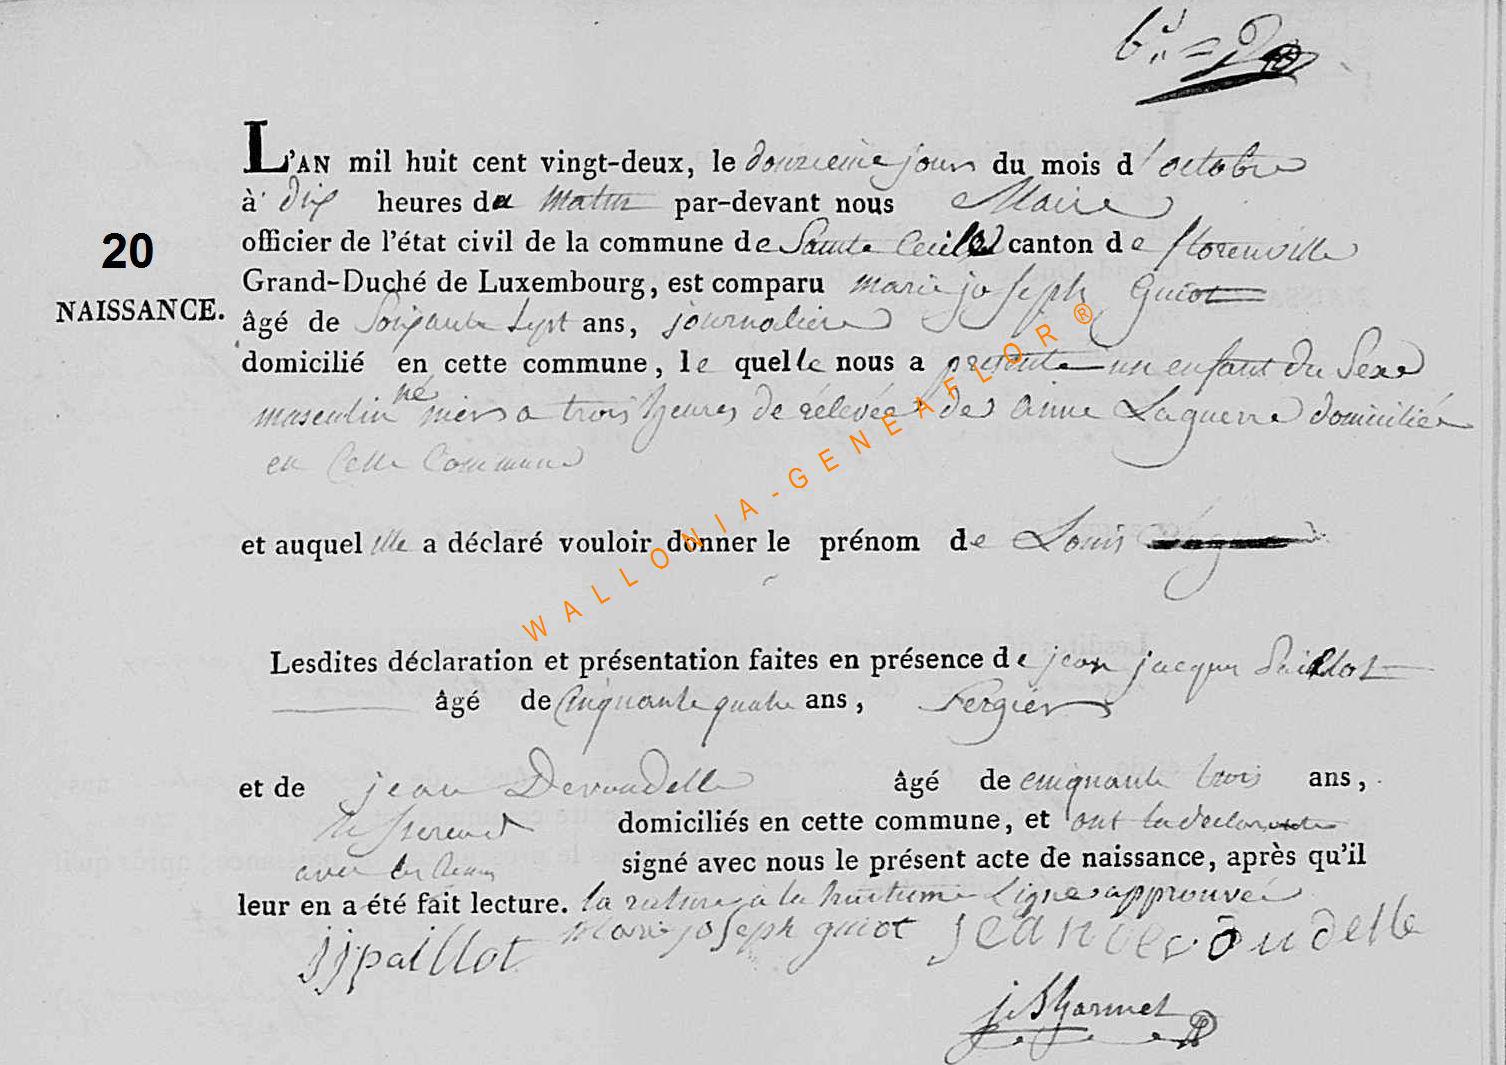 20
NAISSANCE.
L'AN mil huit cent vingt-deux, le douzieme jour du mois d'octobre
à dix heures du matin par-devant nous Maire
officier de l'état civil de la commune de Sainte Cecile canton de florenville
Grand-Duché de Luxembourg, est comparu marie joseph Guiot
âgé de Soixante Sept ans, journaliere
domicilié en cette commune, le quelle nous a presenté un enfant du Sexe
masculin né hiers a trois heures de rélevée de Anne Laguerre domiciliée
en Cette Commune
et auquel elle a déclaré vouloir donner le prénom de Louis
Lesdites déclaration et présentation faites en présence de jean jacques Paillot
âgé de Cinquante quatre ans, Bergier
et de jean Devoudelle âgé de cinquante trois ans,
domiciliés en cette commune, et ont la declarante
avec les temoins signé avec nous le présent acte de naissance, après qu'il
leur en a été fait lecture. la rature a la huitieme Ligne approuvée
jjpaillot marie joseph guiot jean devoudelle
WALLONIA-GENEAFLOR®